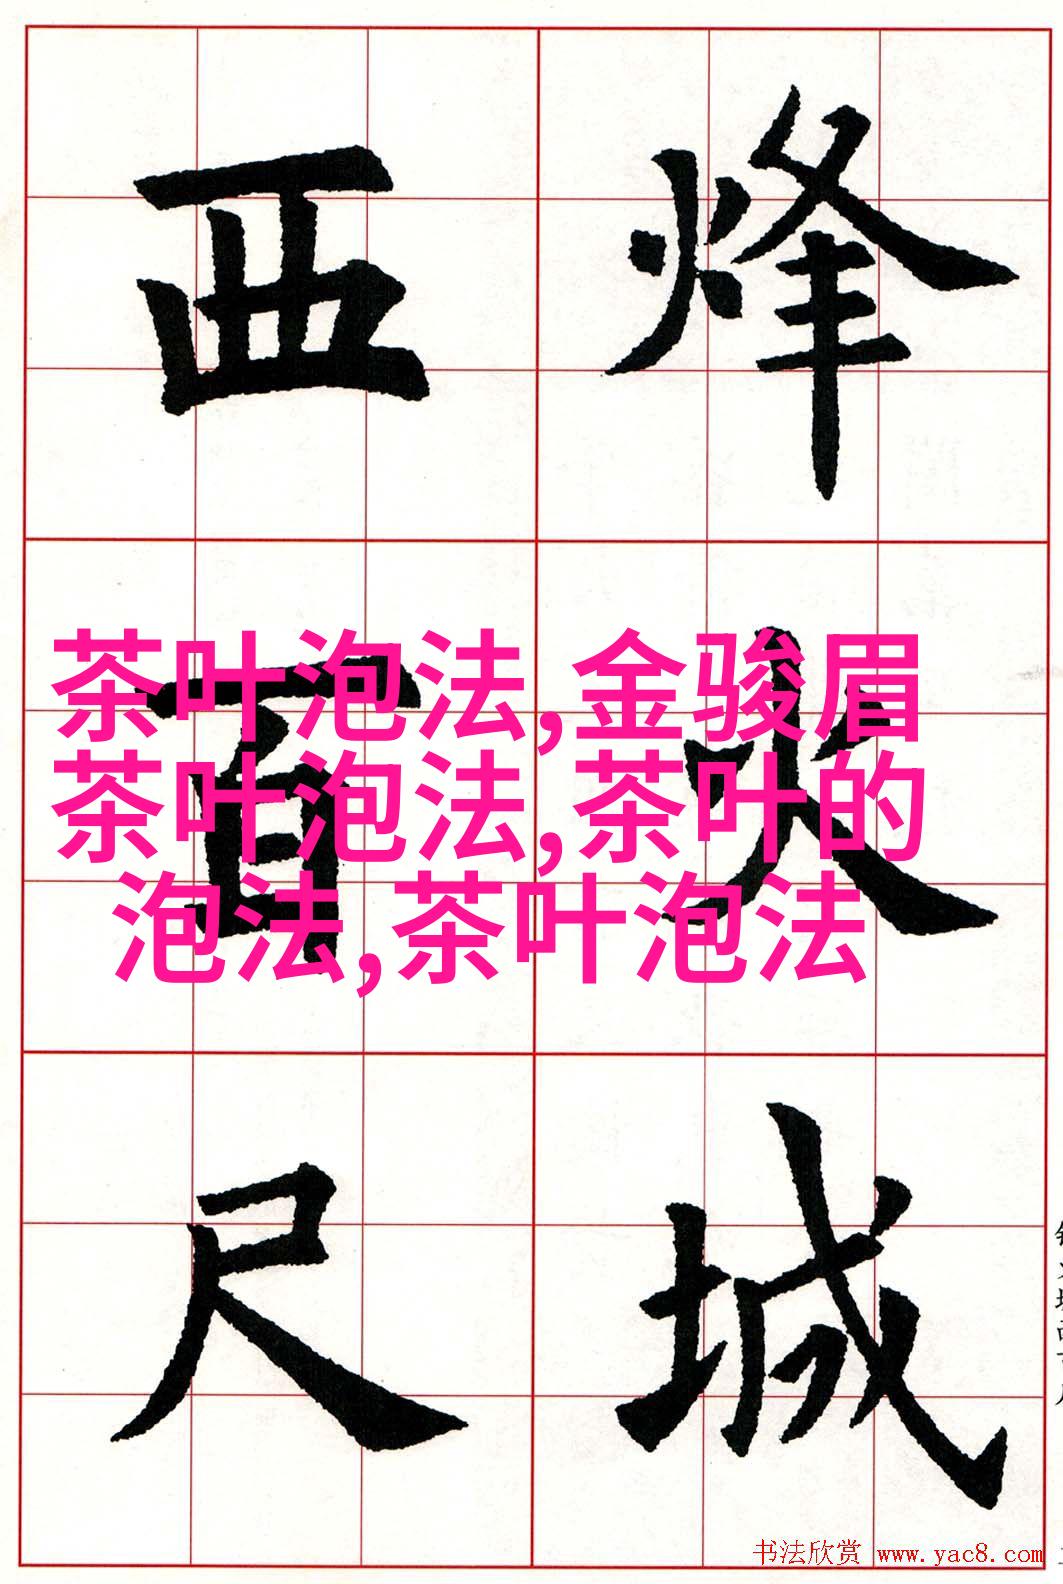 烽火城
西百尺
茶叶泡法,金骏眉
茶叶泡法,茶叶的
泡法,茶叶泡法
书法欣赏 www.yac8.com